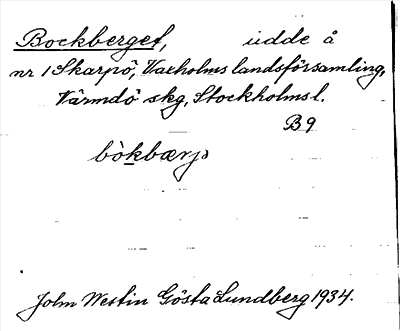 Bockberget, udde å
nr 1 Skarpö, Vaxholms landsförsamling,
Värmdö skg, Stockholms l.
B9
bòkbærjə
John Westin Gösta Lundberg 1934.